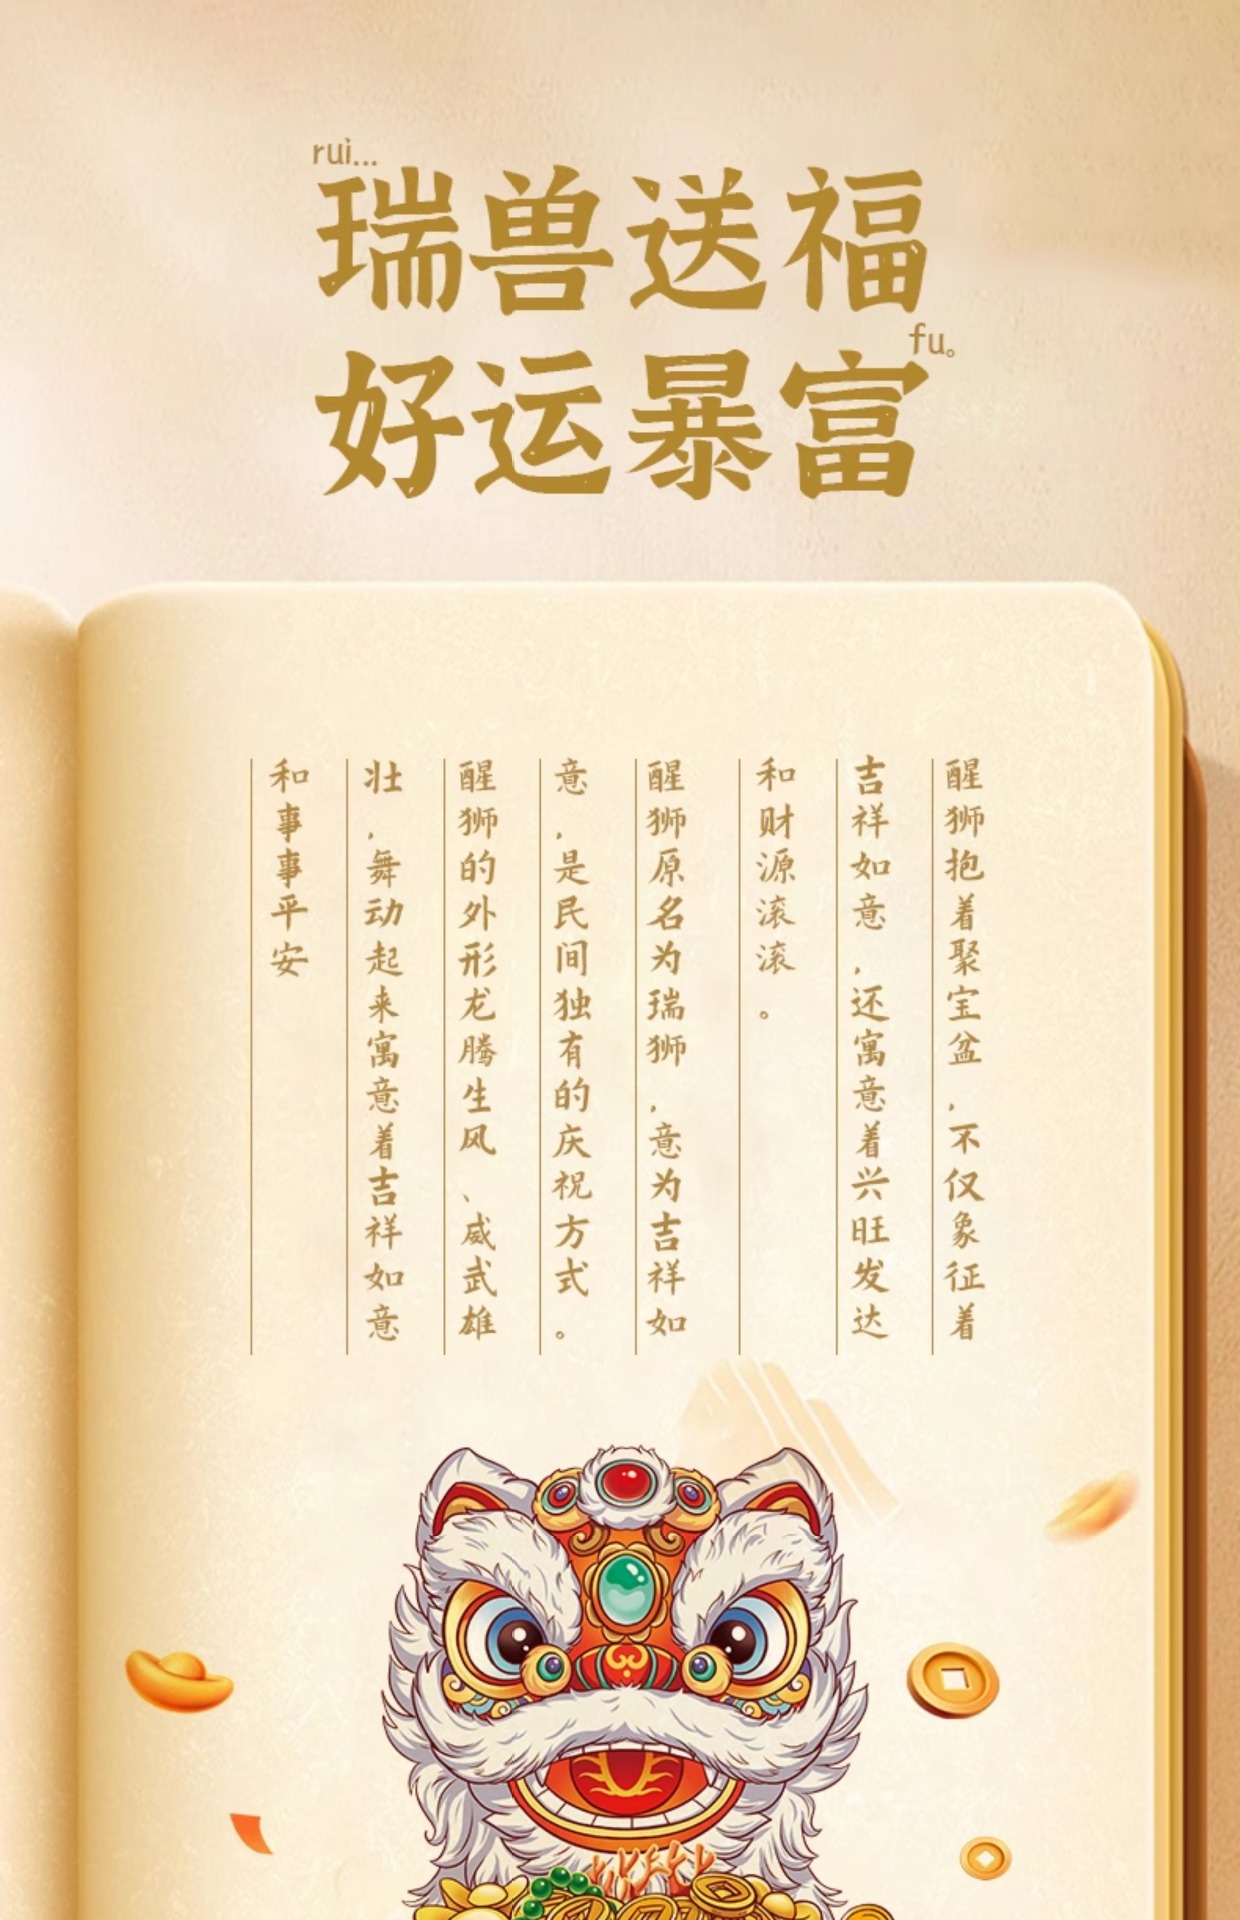 ruì...
瑞兽送福
fu。
好运暴富
醒狮抱着聚宝盆，不仅象征着
吉祥如意，还寓意着兴旺发达
和财源滚滚。
醒狮原名为瑞狮，意为吉祥如
意，是民间独有的庆祝方式。
醒狮的外形龙腾生风、威武雄
壮，舞动起来寓意着吉祥如意
和事事平安